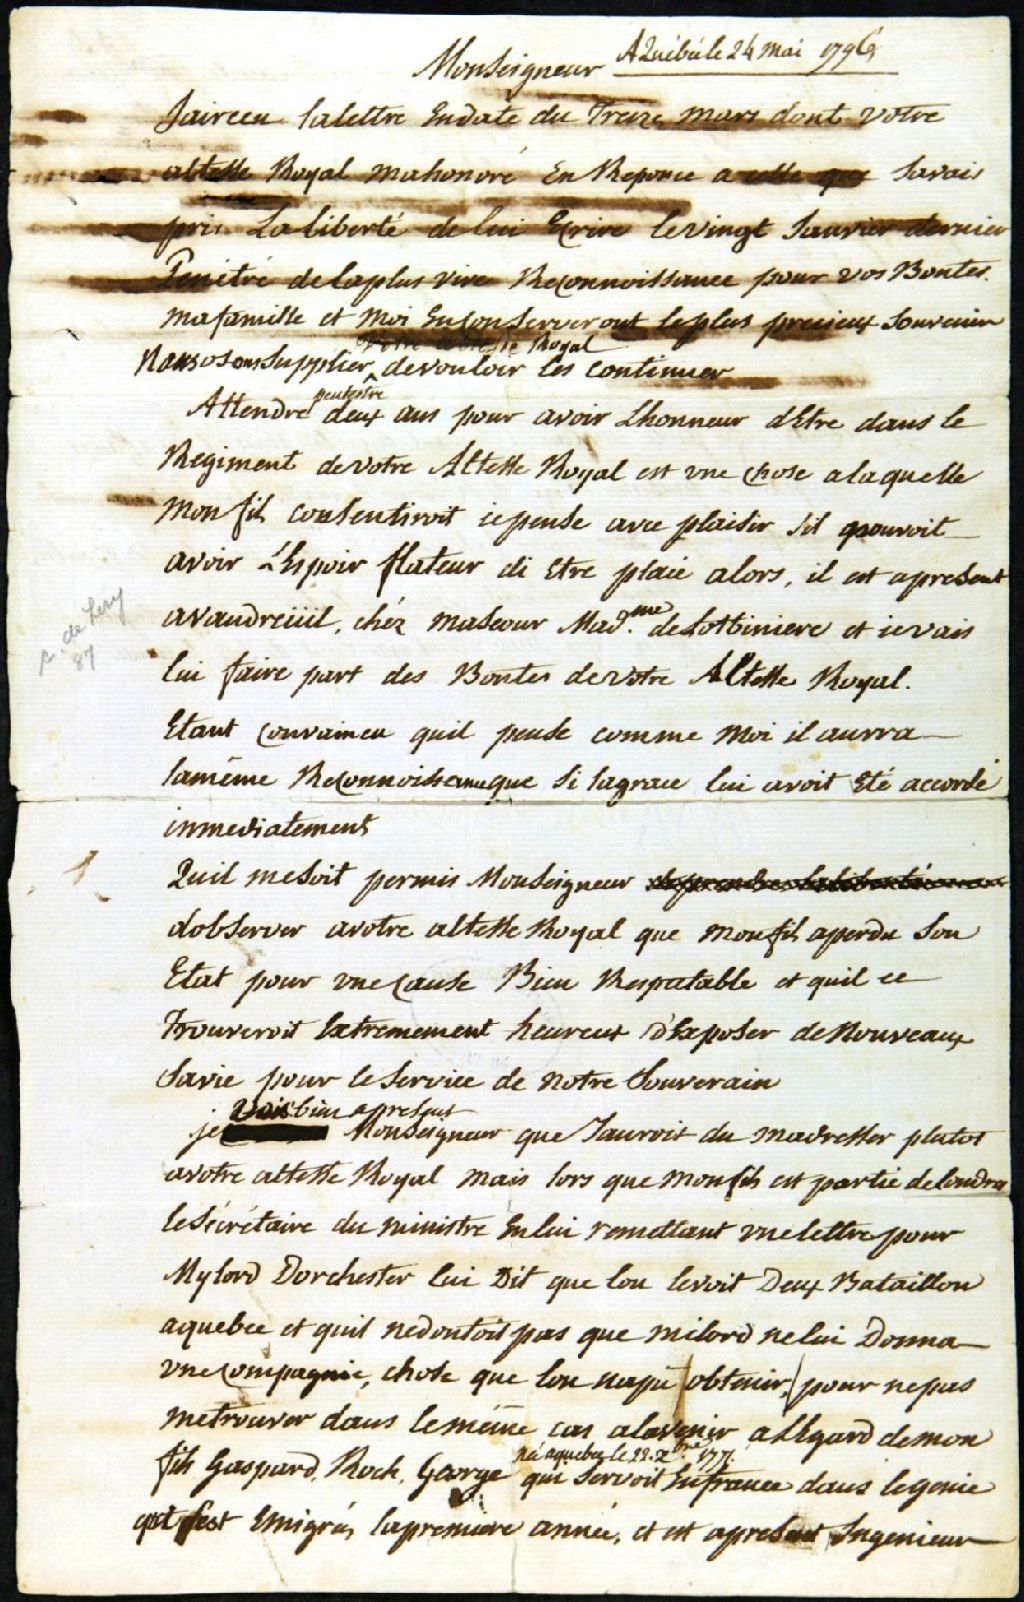 Monseigneur A Quebéc le 24 mai 1796
Jairecu lalettre Endate du Treize mars dont votre
altesse Royal mahonoré En Reponce a celle que Javais
pris La liberté de lui Ecrire levingt Janvier dernier
Penétré delaplus vive Reconnoissance pour vos Bontes.
mafamille et Moi Enconserveront leplus precieux Souvenir
votre altesse Royal
Nous osons supplier devouloir les continuer
peutestre
Attendre deux ans pour avoir Lhonneur dEtre dans le
Regiment devotre Altesse Royal est une chose alaquelle
Mon fils consentiroit jepense avec plaisir sil pouvoit
avoir LEspoir flateur di Etre placé alors, il est apresent
avaudreüil, chéz maSeour Mad.me deLotbiniere et jevais
lui faire part des Bontes devotre Altesse Royal.
Etant convaincu quil pense comme Moi il aurra
lamême Reconnoissance que si lagrace lui avoit Eté accordé
inmediatement
Quil meSoit permis Monseigneur
dobServer avotre altesse Royal que monfils aperdu Son
Etat pour une Cause Bien Respectable et quil ce
Trouveroit Extremement heureux dExposer deNouveaux
Savie pour leService de notre Souverain
vois bien apresent
je Monseigneur que Jauroit du madresser plutot
avotre altesse Royal mais lors que monfils est partie delondres
leSécrétaire du ministre Enlui remettant unelettre pour
Mylord Dorchester lui Dit que lon levoit Deux Bataillon
aquebec et quil nedoutoit pas que milord nelui Donna
unecompagnie, chose que lon napu obtenir, pour nepas
metrouver dans lemême cas alavenir alEgard demon
né aquebec le 22. Xbre 1771.
fils Gaspard, Roch, George qui Servoit Enfrance dans legenie
Emigrés lapremiere année, et est apresent Ingenieur
de Lery
87